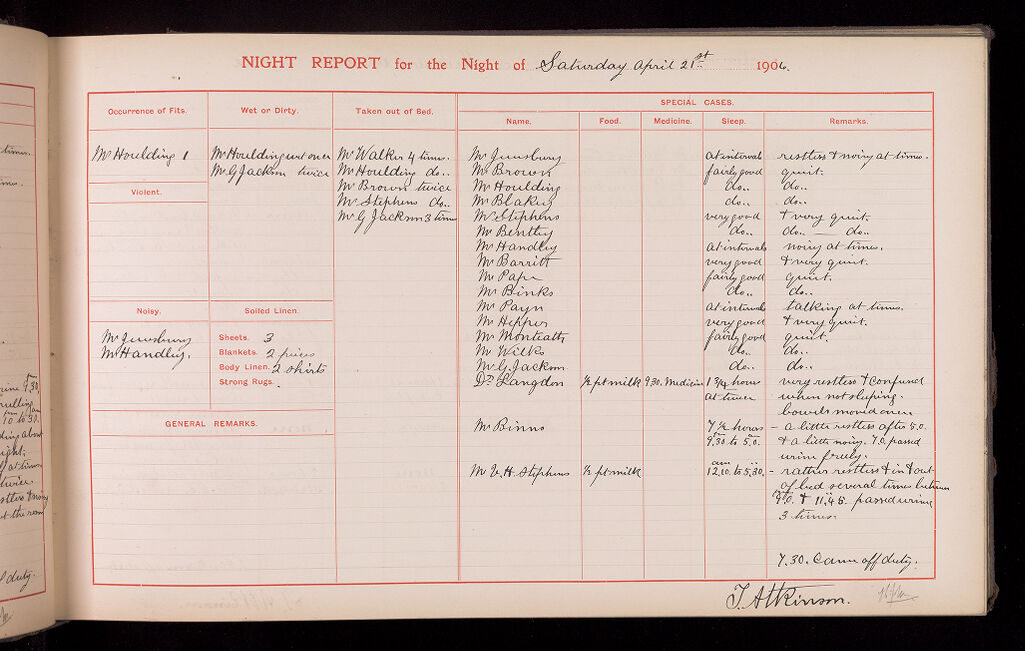 NIGHT REPORT for the Night of Saturday April 21st 1906.
Occurrence of Fits.
Mr Houlding 1
Violent.
Noisy.
Mr Handley.
Wet or Dirty.
Mr Houlding wet once
Mr G Jackson twice
Soiled Linen.
Sheets. 3
Blankets. 2 pieces
Body Linen. 2 shirts
Strong Rugs.
GENERAL REMARKS.
Taken out of Bed.
Mr Walker 4 times.
Mr Houlding do..
Mr Brown twice
Mr Stephens do..
Mr G Jackson 3 times
SPECIAL CASES.
Name. Food. Medicine. Sleep. Remarks.
Mr at intervals restless & noisy at times.
Mr Brown fairly good quiet.
Mr Houlding do.. do..
Mr Blakey do.. do..
Mr Stephens very good & very quiet.
Mr Bentley do.. do.. — do..
Mr Handley at intervals noisy at times.
Mr Barritt very good & very quiet.
Mr Pape fairly good quiet.
Mr Binks do.. do..
Mr Payn at intervals talking at times.
Mr Hepper very good & very quiet.
Mr Monteath fairly good quiet.
Mr Wilks do.. do..
Mr G. Jackson do.. do..
Dr Langdon ½ pt milk 9.30. Medicine 1 3/4 hours very restless & confused
at times when not sleeping.
bowels moved once
Mr Binns 7 ½ hours – a little restless after 5.0.
9.30 to 5.0. & a little noisy. 7.0. passed
urine freely.
Mr V. H. Stephens ½ pt milk 12.10. am to 5.30. – rather restless & in & out
of bed several times between
9.0. & 11.45. passed urine
3 times.
7.30. Came off duty.
T. Atkinson.